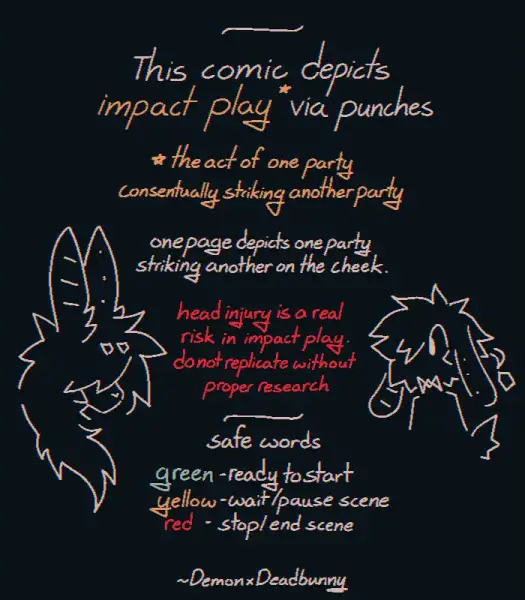 This comic depicts
impact play* via punches
* the act of one party
consentually striking another party
one page depicts one party
striking another on the cheek.
head injury is a real
risk in impact play.
do not replicate without
proper research
safe words
green - ready to start
yellow - wait/pause scene
red - stop/end scene
~Demon×Deadbunny